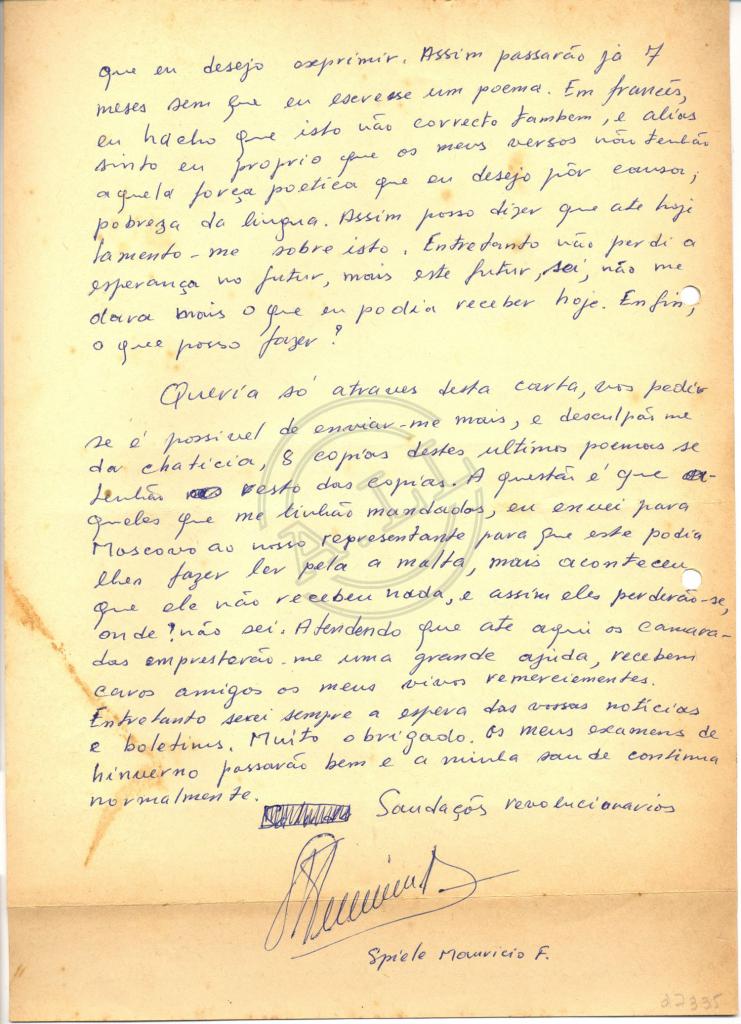 que eu desejo exprimir. Assim passarão já 7
meses sem que eu escrevesse um poema. Em francês,
eu hacho que isto não correcto tambem, e alias
sinto eu proprio que os meus versos não tenhão
aquela força poetica que eu desejo pôr causa,
pobreza da lingua. Assim posso dizer que ate hoje
lamento-me sobre isto. Entretanto não perdi a
esperança no futur, mais este futur, sei, não me
dara mais o que eu podia receber hoje. Enfin,
o que posso fazer?
Queria só atraves desta carta, vos pedir
se é possivel de enviar-me mais, e desculpár me
da chaticia, 8 copias destes ultimos poemas se
tenhão resto das copias. A questão é que a-
queles que me tinhão mandados, eu enviei para
Moscovo ao nosso representante para que este podia
lhes fazer ler pela a malta, mais aconteceu
que ele não recebeu nada, e assim eles perderão-se,
onde? não sei. Atendendo que ate aqui os camara-
das emprestarão-me uma grande ajuda, recebem
caros amigos os meus vivos remerciementes.
Entretanto serei sempre a espera das vossas notícias
e boletims. Muito obrigado. Os meus examens de
hinverno passarão bem e a minha saude continua
normalmente.
Saudaçõs revolucionarios
Spiele Mauricio F.
AIH
27335